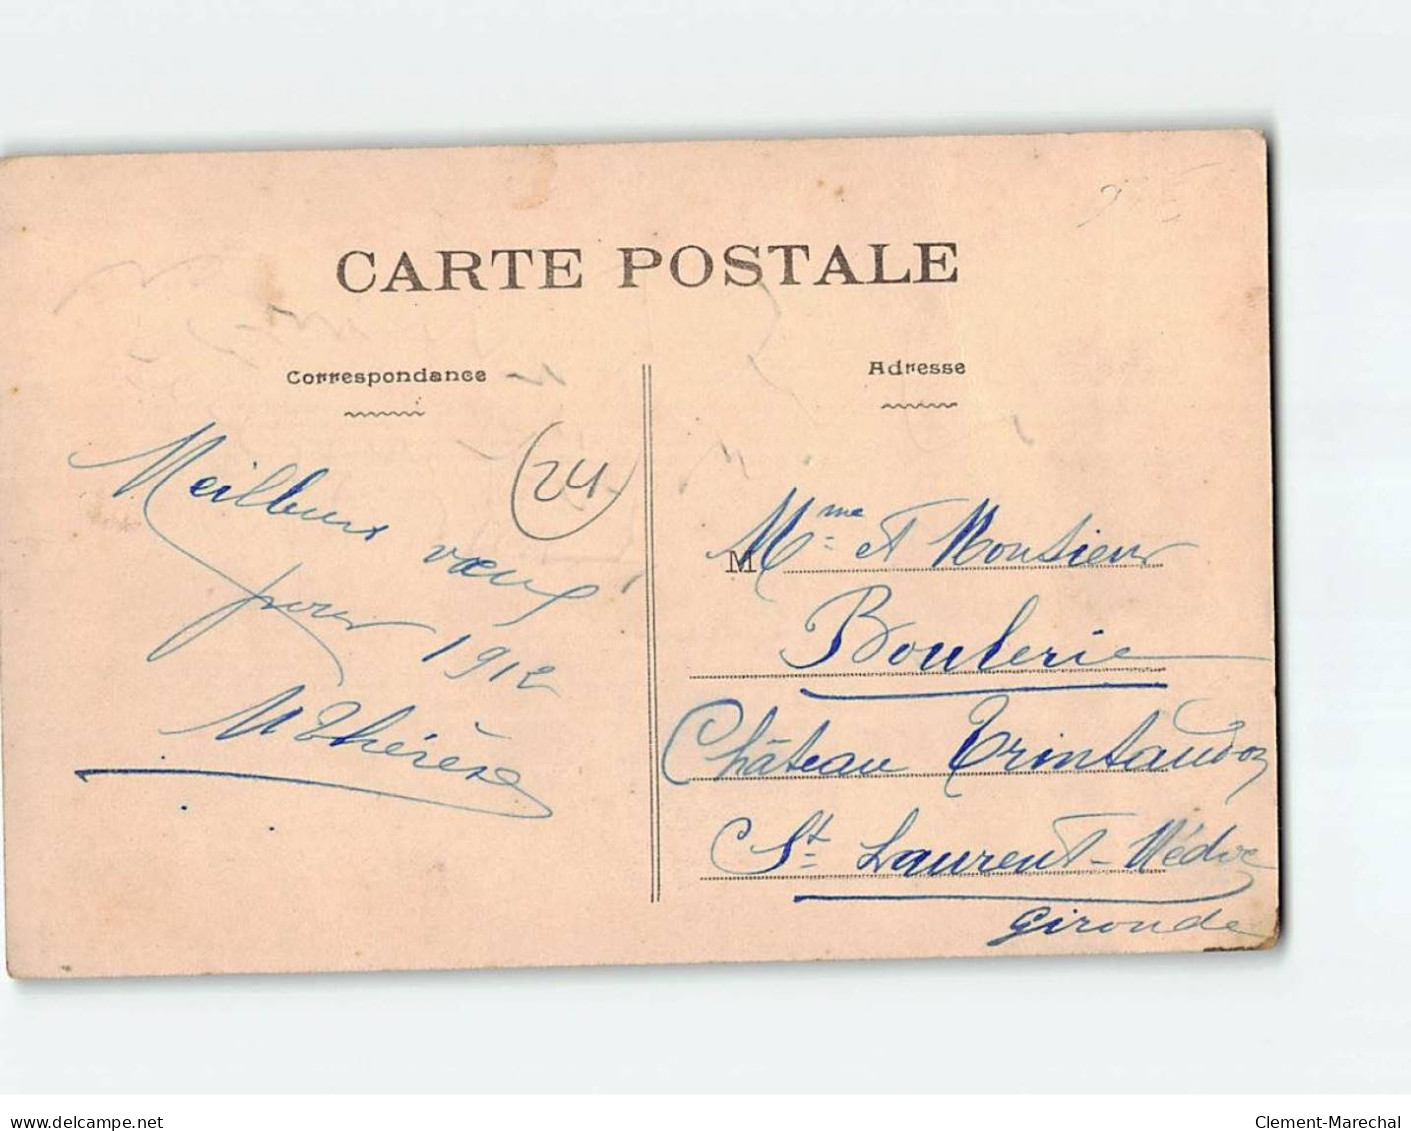 CARTE POSTALE
Correspondance
Adresse
24
Meilleurs vœux
pour 1912
M Thérèse
M
Mme et Monsieur
Boulerie
Château Trintaudon
St Laurent-Médoc
Gironde
delcampe.net
Clement-Marechal